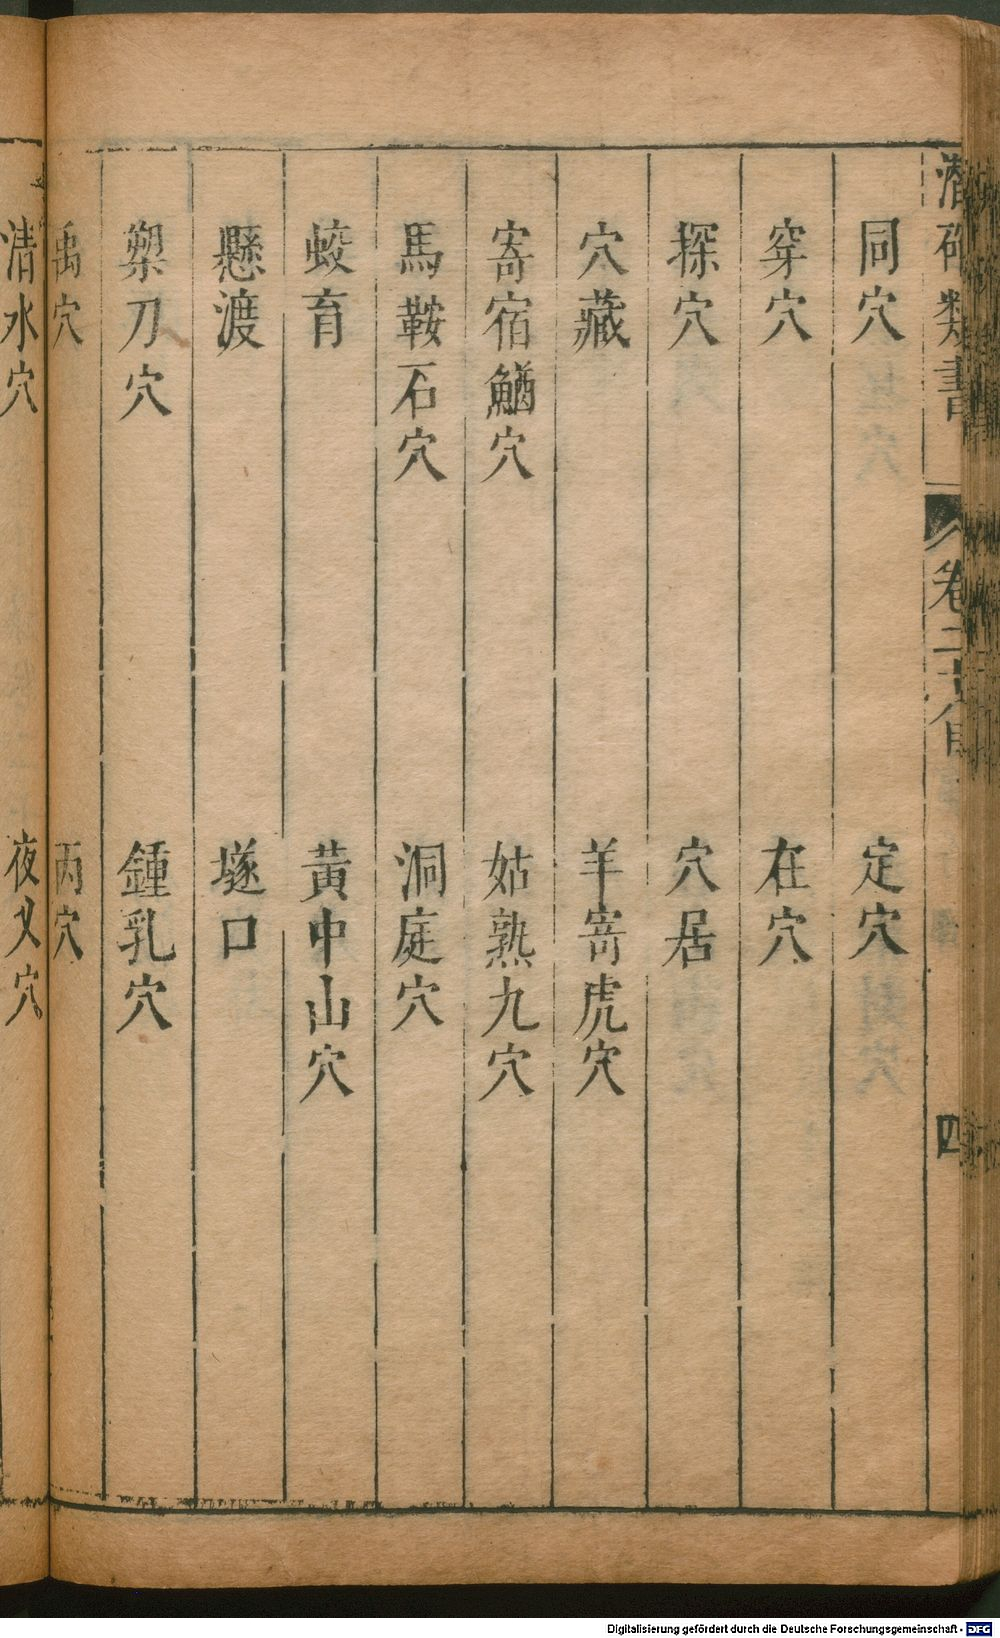 潛確類書 卷二十 四
同穴 定穴
穿穴 在穴
探穴 穴居
穴藏 羊嵜虎穴
寄宿鰌穴 姑熟九穴
馬鞍石穴 洞庭穴
蛟育 黃中山穴
懸渡 墜口
槊刀穴 鍾乳穴
禹穴 丙穴
清水穴 夜叉穴
Digitalisierung gefördert durch die Deutsche Forschungsgemeinschaft - DFG